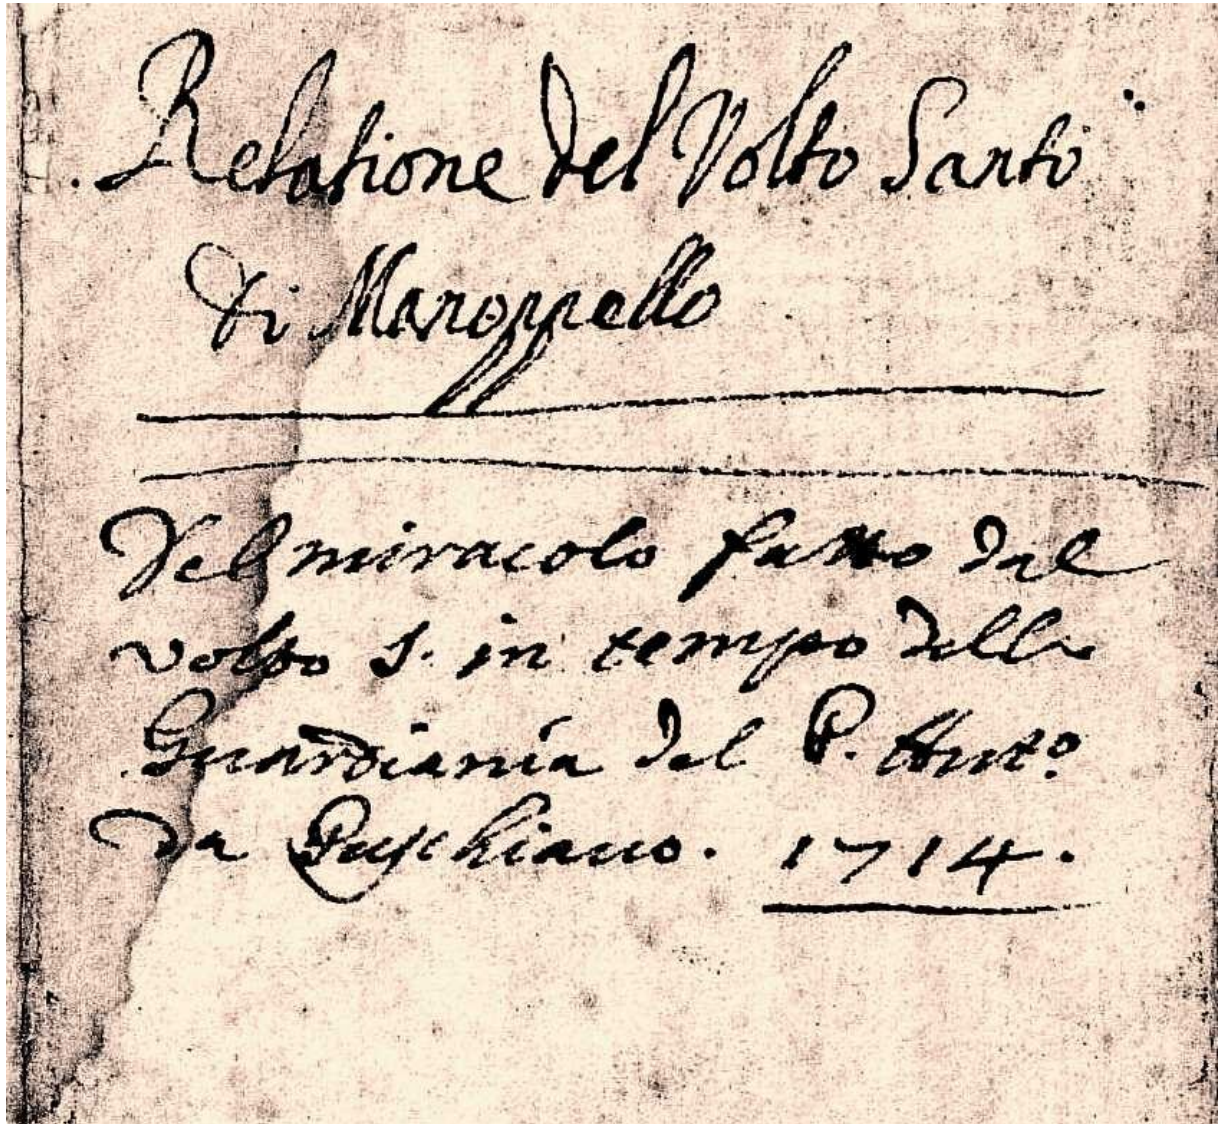 Relatione del Volto Santo
di Manoppello
Del miracolo fatto dal
volto S. in tempo della
Guardiania del P. Ant.º
da Paschiano. 1714.